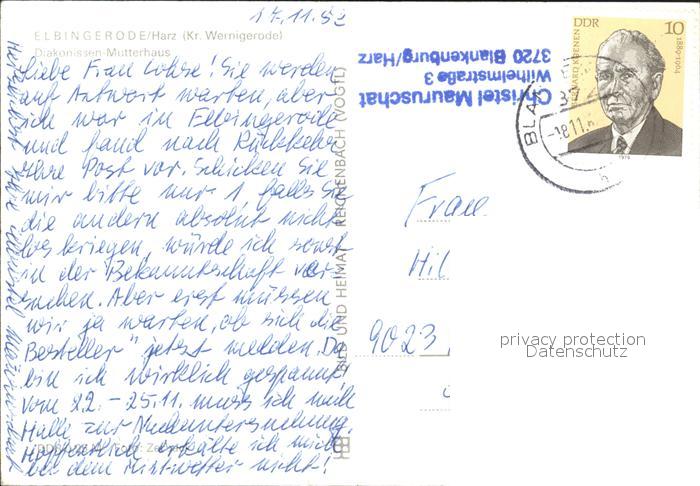 17.11.82
ELBINGERODE/Harz (Kr. Wernigerode)
Diakonissen-Mutterhaus
Liebe Frau Lohse! Sie werden
auf Antwort warten, aber
ich war in Elbingerode
und fand nach Rückkehr
Ihre Post vor. Schicken Sie
mir bitte nur 1, falls Sie
die andern absolut nicht
los kriegen, würde ich sonst
in der Bekanntschaft ver-
suchen. Aber erst müssen
wir ja warten, ob sich die
Besteller" jetzt melden. Da
bin ich wirklich gespannt!
Vom 22. - 25.11. muss ich nach
Halle zur Nachuntersuchung.
Hoffentlich erkälte ich mich
bei dem Mistwetter nicht!
Herzlichst Ihre Christel Mauruschat
BILD UND HEIMAT REICHENBACH (VOGTL)
Christel Mauruschat
Wilhelmstraße 3
3720 Blankenburg/Harz
DDR
10
1889-1964
1979
BLA
-18.11.
Frau
Hil
9023
privacy protection
Datenschutz